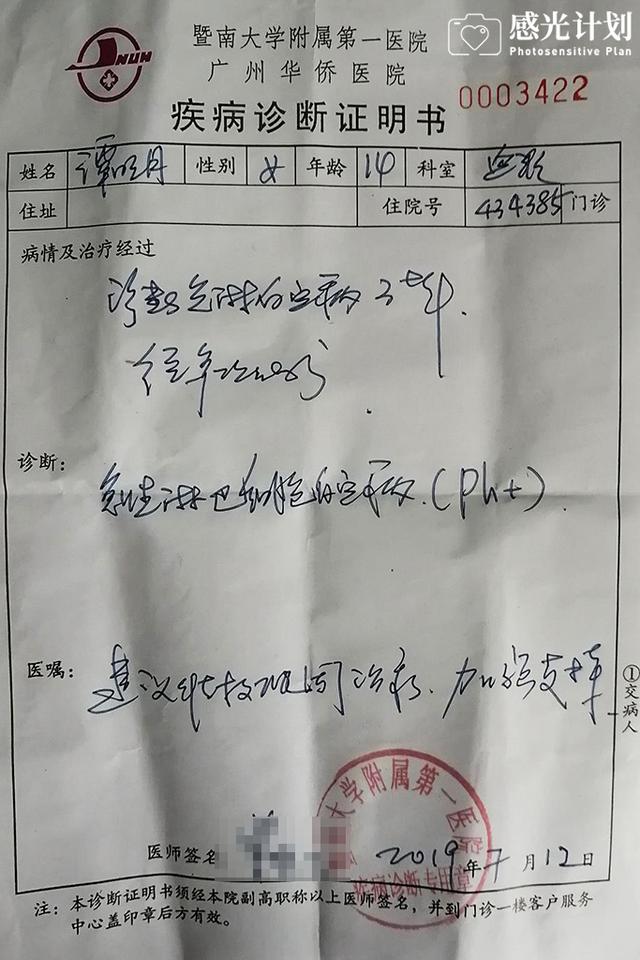 感光计划
Photosensitive Plan
NUH
暨南大学附属第一医院
广州华侨医院
0003422
疾病诊断证明书
姓名 谭明月 性别 女 年龄 14 科室
住址 住院号 434385 门诊
病情及治疗经过
诊断:
急性淋巴细胞白血病(Ph+).
医嘱:
建议 治疗. 加强支持
①交病人
大学附属第一医院
疾病诊断专用章
医师签名 2019年7月12日
注:本诊断证明书须经本院副高职称以上医师签名,并到门诊一楼客户服务
中心盖印章后方有效。